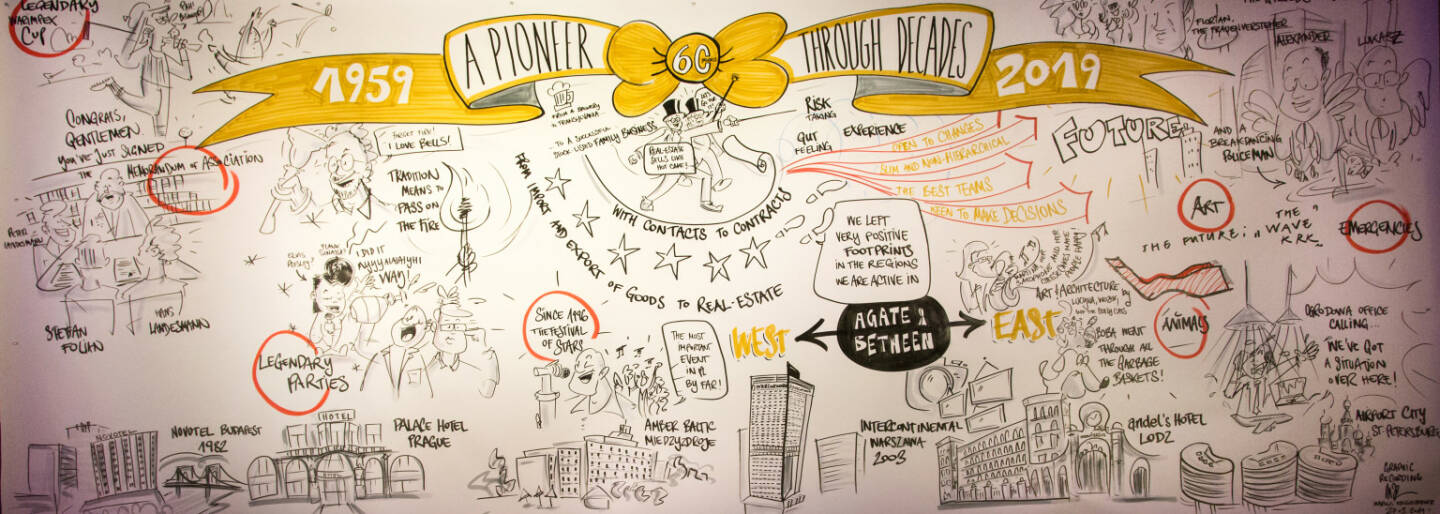 LEGENDARY
WARIMPEX
CUP
1959
A PIONEER
60
THROUGH DECADES
2019
FLORIAN,
ALEXANDER
LUKASZ
CONGRATS,
GENTLEMEN,
YOU'VE JUST SIGNED
THE MEMORANDUM OF ASSOCIATION
PETER
STEFAN
FOLIAN
HANS
LANDESMANN
I LOVE BELLS!
TRADITION
MEANS TO
PASS ON
THE FIRE
ELVIS
PRESLEY?
FRANK
SINATRA?
I DID IT
WAY!
LEGENDARY
PARTIES
FROM A BREWERY
IN TRANSYLVANIA
... TO A SUCCESSFUL
STOCK LISTED FAMILY BUSINESS
REAL-ESTATE
SELLS LIKE
HOT CAKE!
WITH CONTACTS TO CONTRACTS
FROM IMPORT AND EXPORT
OF GOODS TO REAL-ESTATE
RISK
TAKING
GUT
FEELING
EXPERIENCE
OPEN TO CHANGES
SLIM AND NON-HIERARCHICAL
THE BEST TEAMS
KEEN TO MAKE DECISIONS
FUTURE
AND A
BREAKDANCING
POLICEMAN
ART
THE FUTURE: "THE WAVE"
KRK
EMERGENCIES
WE LEFT
VERY POSITIVE
FOOTPRINTS
IN THE REGIONS
WE ARE ACTIVE IN
SINCE 1996
THE FESTIVAL
OF STARS
THE MOST
IMPORTANT
EVENT
IN PL
BY FAR!
WEST
AGATE
BETWEEN
EAST
ART & ARCHITECTURE
BOBA WENT
THROUGH ALL
THE GARBAGE
BASKETS!
ANIMALS
OGRODOWA OFFICE
CALLING...
WE'VE GOT
A SITUATION
OVER HERE!
NOVOTEL
NOVOTEL BUDAPEST
1982
HOTEL
PALACE HOTEL
PRAGUE
AMBER BALTIC
MIEDZYZDROJE
INTERCONTINENTAL
WARSZAWA
2003
andel's HOTEL
LODZ
AIRPORT CITY
ST. PETERSBURG
GRAPHIC
RECORDING